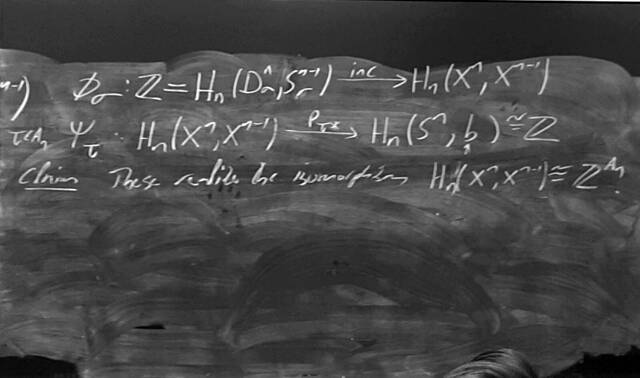 n-1) Φ_σ : ℤ = H_n(D^n_σ, S^{n-1}_σ) —inc→ H_n(X^n, X^{n-1})
τ∈A_n Ψ_τ : H_n(X^n, X^{n-1}) —P_{τ*}→ H_n(S^n, b) ≅ ℤ
Claim These realise the isomorphism H_n(X^n, X^{n-1}) ≅ ℤ^{A_n}